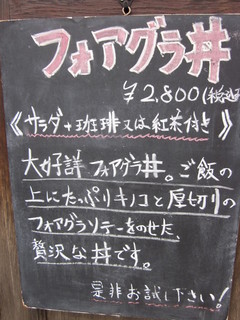 フォアグラ丼
¥2,800(税込)
《サラダ+珈琲又は紅茶付き》
大好評フォアグラ丼。ご飯の
上にたっぷりキノコと厚切りの
フォアグラソテーをのせた、
贅沢な丼です。
是非お試し下さい!